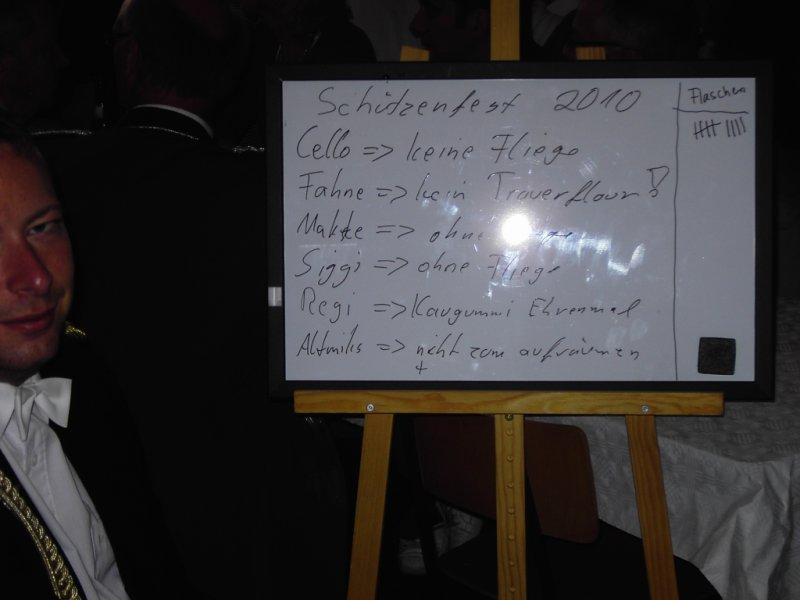 Schützenfest 2010
Cello => keine Fliege
Fahne => kein Trauerflor!
Makke => ohne
Siggi => ohne Fliege
Regi => Kaugummi Ehrenmal
Altmilis => nicht zum aufräumen
Flaschen